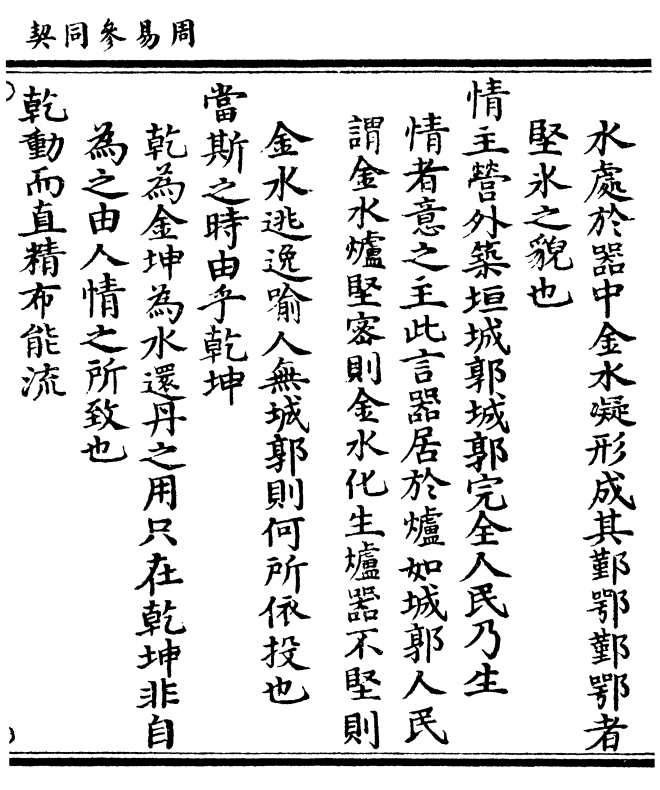 周易參同契
水處於器中金水凝形成其鄞鄂鄞鄂者
堅氷之貌也
情主營外築垣城郭城郭完全人民乃生
情者意之主此言器居於爐如城郭人民
謂金水爐堅宻則金水化生壚器不堅則
金水逃逸喻人無城郭則何所依投也
當斯之時由乎乾坤
乾為金坤為水還丹之用只在乾坤非自
為之由人情之所致也
乾動而直精布能流